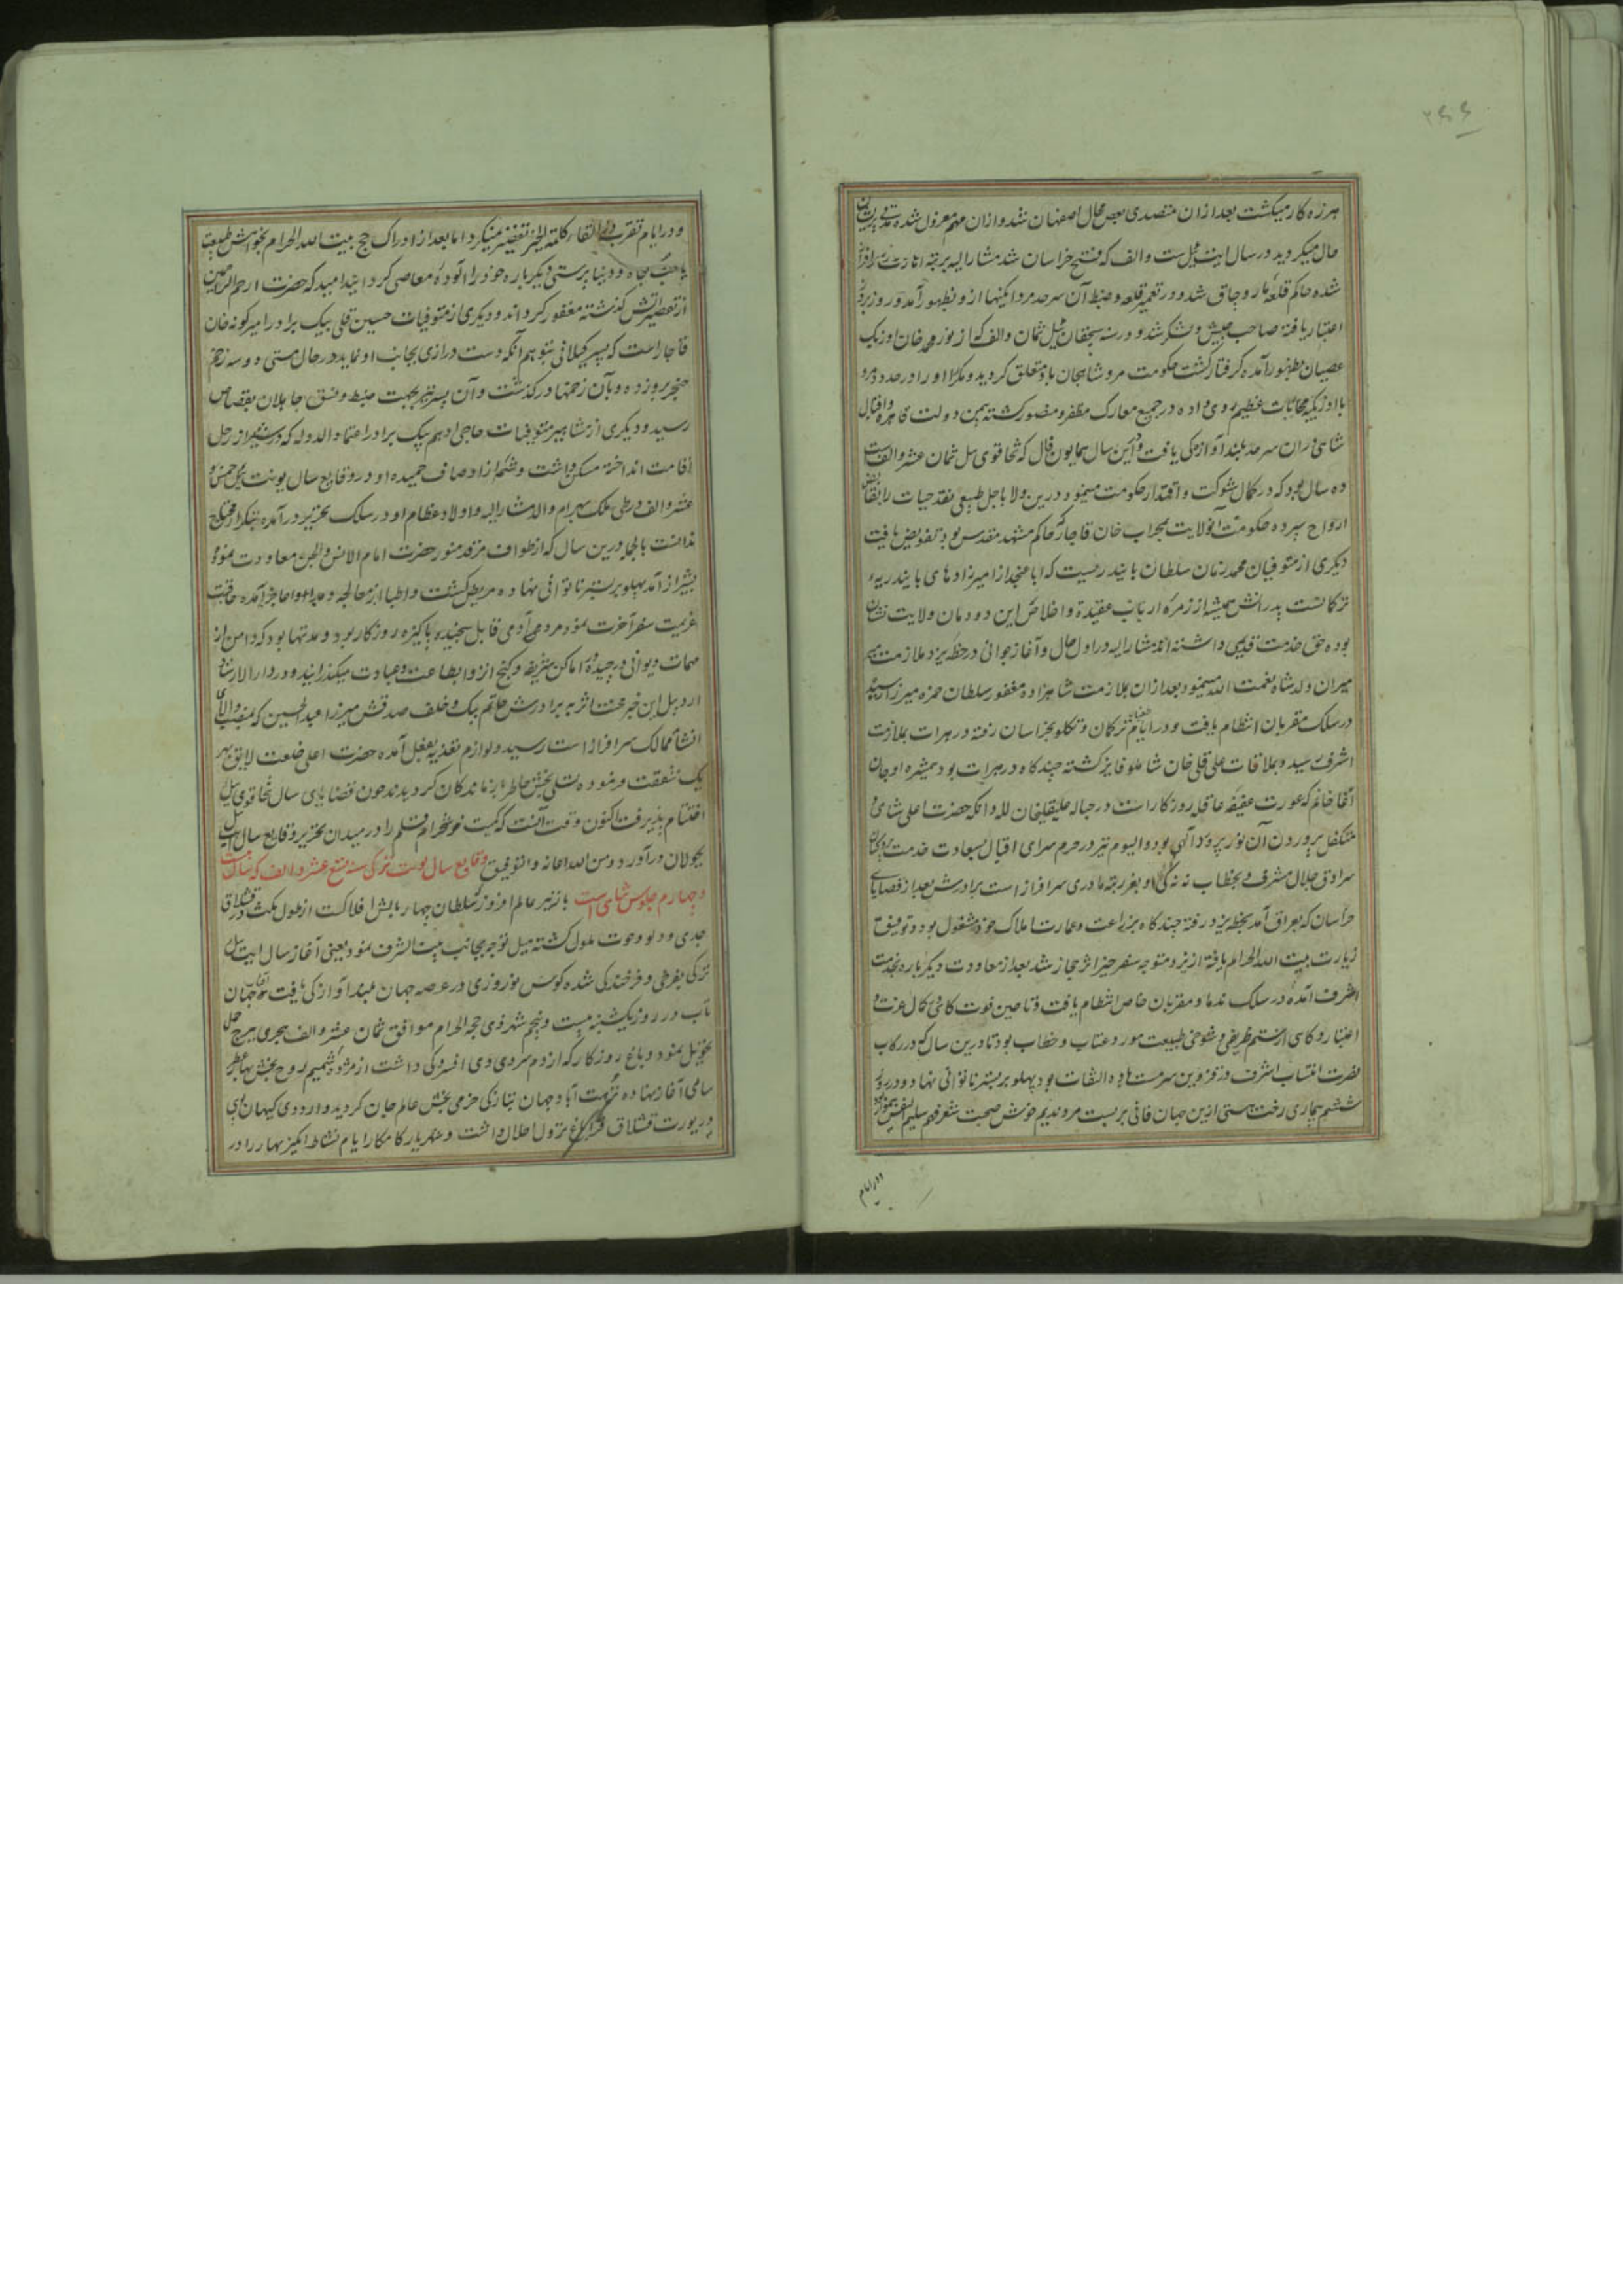 ۲۶۶
هرزه کار میگشت بعد از ان متصدی بعض محال اصفهان شد و ازان مهم معزول شده مدتی پریشان
حال میگردید در سال ایت ئیل ست والف که فتح خراسان شد مشار الیه برتبه امارت سرافراز
شده حاکم قلعه ماروجاق شد و در تعمیر قلعه و ضبط آن سرحد مردانگیها ازو بظهور آمد و روز بروز
اعتبار یافته صاحب جیش و لشکر شد و در سنه سیچقان ئیل ثمان والف که از نور محمد خان اوزبک
عصیان بظهور آمده گرفتار گشت حکومت مرو شاهجان باو متعلق گردید و مکررا او را در حدود مرو
با اوزبکیه محاربات عظیم روی داده در جمیع معارک مظفر و منصور گشته بیمن دولت قاهره و اقبال
شاهی دران سرحد بلند آوازگی یافت و درین سال همایون فال که تخاقوی ئیل ثمان عشر والف است
ده سال بود که در کمال شوکت و اقتدار حکومت مینمود درین ولا باجل طبیعی نقد حیات را بقابض
ارواح سپرده حکومت آنولایت بمحراب خان قاجار که حاکم مشهد مقدس بود تفویض یافت
دیگری از متوفیان محمد زمان سلطان بایندرست که ابا عنجد از امیرزادهای بایندریه
ترکانست پدرانش همیشه از زمره ارباب عقیدت و اخلاص این دودمان ولایت نشان
بوده حق خدمت قدیمی داشته اند مشار الیه در اول حال و آغاز جوانی در خطه یزد ملازمت میر
میران ولد شاه نعمت الله مینمود و بعد از ان بملازمت شاهزاده مغفور سلطان حمزه میرزا رسید
در سلک مقربان انتظام یافت و در ایام ترکمان و تکلو بخراسان رفته در هرات بملازمت
اشرف رسید و بملاقات علی قلی خان شاملو فایز گشته چندگاه در هرات بود همشیره او جان
آغا خانم که عورت عفیفه عاقله روزگار است در حباله علیقلیخان لله و اتکه حضرت اعلی شاهی و
متکفل پروردن آن نور پرورد الهی بود و الیوم نیز در حرم سرای اقبال بسعادت خدمت
سرادق جلال مشرف و بخطاب ننه گی او بغر رتبه مادری سرافراز است برادرش بعد از قضایای
خراسان که بعراق آمد بخطه یزد رفته چندگاه بزراعت و عمارت املاک خود مشغول بود و توفیق
زیارت بیت الله الحرام یافته از یزد متوجه سفر خیر اثر حجاز شد بعد از معاودت دیگرباره بخدمت
اشرف آمده در سلک ندما و مقربان خاص انتظام یافت و تا حین فوت گاهی کمال عزت و
اعتبار و گاهی از ستم ظریفی و شوخی طبیعت مورد عتاب و خطاب بود تا درین سال که در رکاب
نصرت انتساب اشرف در قزوین سرمست باده التفات بود پهلو بر بستر ناتوانی نهاد و در روز
ششم بیماری رخت هستی ازین جهان فانی بربست مرد ندیم خوش صحبت شعر فهم سلیم النفس بود
و در ایام
و در ایام تقرب در القاء کلمة الخیر تقصیر نمیکرد اما بعد از ادراک حج بیت الله الحرام بخواهش طبیعت
یا حب جاه و دنیا پرستی دیگرباره خود را آلوده معاصی گردانید امید که حضرت ارحم الراحمین
از تقصیراتش گذشته مغفور گرداند و دیگری از متوفیات حسین قلی بیک برادر امیر گونه خان
قاجار است که پسر گیلانی بتوهم آنکه دست درازی بجانب او نماید در حال مستی دو سه زخم
خنجر بروزده و بآن زخمها درگذشت و آن پسر نیز بجهت ضبط و نسق جاهلان بقصاص
رسید و دیگری از مشاهیر متوفیات حاجی ادهم بیک برادر اعتماد الدوله که در شیراز رحل
اقامت انداخته مسکن داشت و شمه از اوصاف حمیده او در وقایع سال یونت ئیل خمس و
عشر والف در طی ملک بهرام والد مشار الیه و اولاد عظام او در سلک تحریر درآمده بتکرار محتاج
ندانست بالجمله درین سال که از طواف مرقد منور حضرت امام الانس و الجن معاودت نموده
بشیراز آمد پهلو بر بستر ناتوانی نهاده مریض گشت و اطبا از معالجه و مداوا عاجز آمده عاقبت
عزیمت سفر آخرت نمود مردمی آدمی قابل سنجیده پاکیزه روزگار بود و مدتها بود که دامن از
مهمات دیوانی درچیده در اماکن شریفه و کنج انزوا بطاعت و عبادت میگذرانید و در دار الارشاد
اردبیل این خبر محنت اثر به برادرش حاتم بیک و خلف صدقش میرزا عبد الحسین که بمنصب والای
انشا ممالک سرافراز است رسید و لوازم تعزیه بفعل آمده حضرت اعلی خلعت لایق بهر
یک شفقت فرموده تسلی بخش خاطر بازماندگان گردیدند چون قضایای سال تخاقوی ئیل
اختتام پذیرفت اکنون وقت آنست که کمیت خوشخرام قلم را در میدان تحریر وقایع سال ایت ئیل
بجولان درآورد و من الله الاعانه و التوفیق وقایع سال ایت ترکی سنه تسع عشر والف که سال بیست
و چهارم جلوس شاهی است با نیر عالم افروز که سلطان چهار بالش افلاکست از طول مکث در قشلاق
جدی و دلو و حوت ملول گشته میل توجه بجانب بیت الشرف نمود یعنی آغاز سال ایت ئیل
ترکی بفرخی و فرخندگی شده کوس نوروزی در عرصه جهان بلند آوازگی یافت آفتاب جهان
تاب در روز یکشنبه بیست و پنجم شهر ذی حجه الحرام موافق ثمان عشر والف هجری ببرج حمل
تحویل نمود و باغ روزگار که از دم سردی دی افسردگی داشت از شمیم روح بخش بهار عطر
سای آغاز نهاده نزهت آباد جهان بتازگی خرمی بخش عالم جان گردید و اردوی کیهان پوی
در یورت قشلاق قراباغ نزول اجلال داشت و شهریار کامکار ایام نشاط انگیز بهار را در